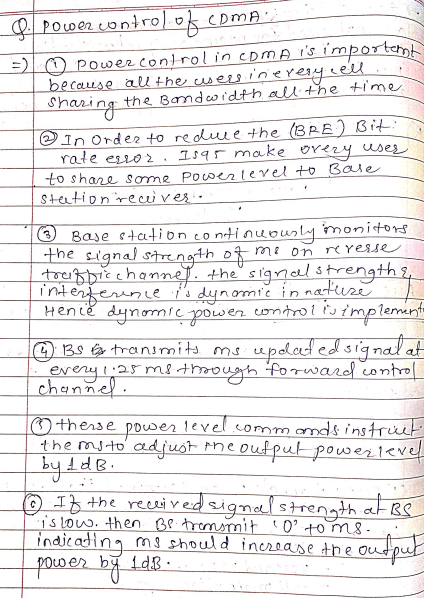 Q. Power control of CDMA.
=) ① Power control in CDMA is important
because all the users in every cell
sharing the Bandwidth all the time.
② In Order to reduce the (BRE) Bit
rate error. IS95 make every user
to share same Power level to Base
station receives.
③ Base station continuously monitors
the signal strength of ms on reverse
traffic channel. the signal strength &
interference is dynamic in nature
Hence dynamic power control is implement
④ BS transmits ms updated signal at
every 1.25 ms through forward control
channel.
⑤ these power level commands instruct
the ms to adjust the output power level
by 1dB.
⑥ If the received signal strength at BS
is low. then BS transmit '0' to ms.
indicating ms should increase the output
power by 1dB.